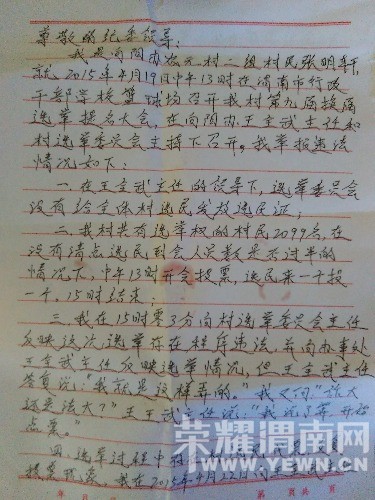 尊敬的纪委领导:
我是向阳办 元村二组村民张明
就2015年4月19日中午13时在渭南市行政
干部学校篮球场召开我村第九届换届
选举提名大会,在向阳办王全武主任和
村选举委员会主持下召开。我举报违法
情况如下:
一、在王全武主任的领导下,选举委员会
没有给全体村选民发放选民证;
二、我村共有选举权的村民2099名,在
没有清点选民到会人员数是否过半的
情况下,中午13时开会投票,选民来一个投
一个,15时结束;
三、我在15时零3分向村选举委员会主任
反映这次选举存在程序违法,并向办事处
王全武主任反映选举情况,但王全武主任
答复说:"我就是这样弄的。"我又问:"你大
还是法大?"王全武主任说:"我说了算,开始
点票。"
四、选举过程中
投票现象,我在2015年4月22日向
荣耀渭南网
WWW.YEWN.CN
年 月 日 第 页 共 页